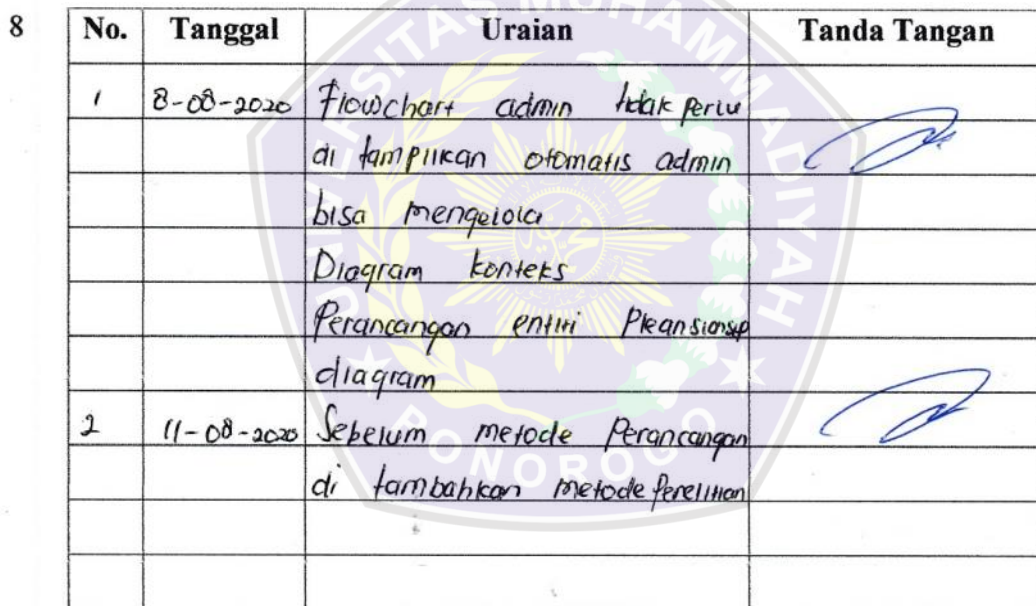 8
No. Tanggal Uraian Tanda Tangan
1 8-08-2020 Flowchart admin tidak perlu
di tampilkan otomatis admin
bisa mengelola
Diagram konteks
Perancangan entiti
diagram
2 11-08-2020 Sebelum metode Perancangan
di tambahkan metode Penelitian
UNIVERSITAS MUHAMMADIYAH
PONOROGO